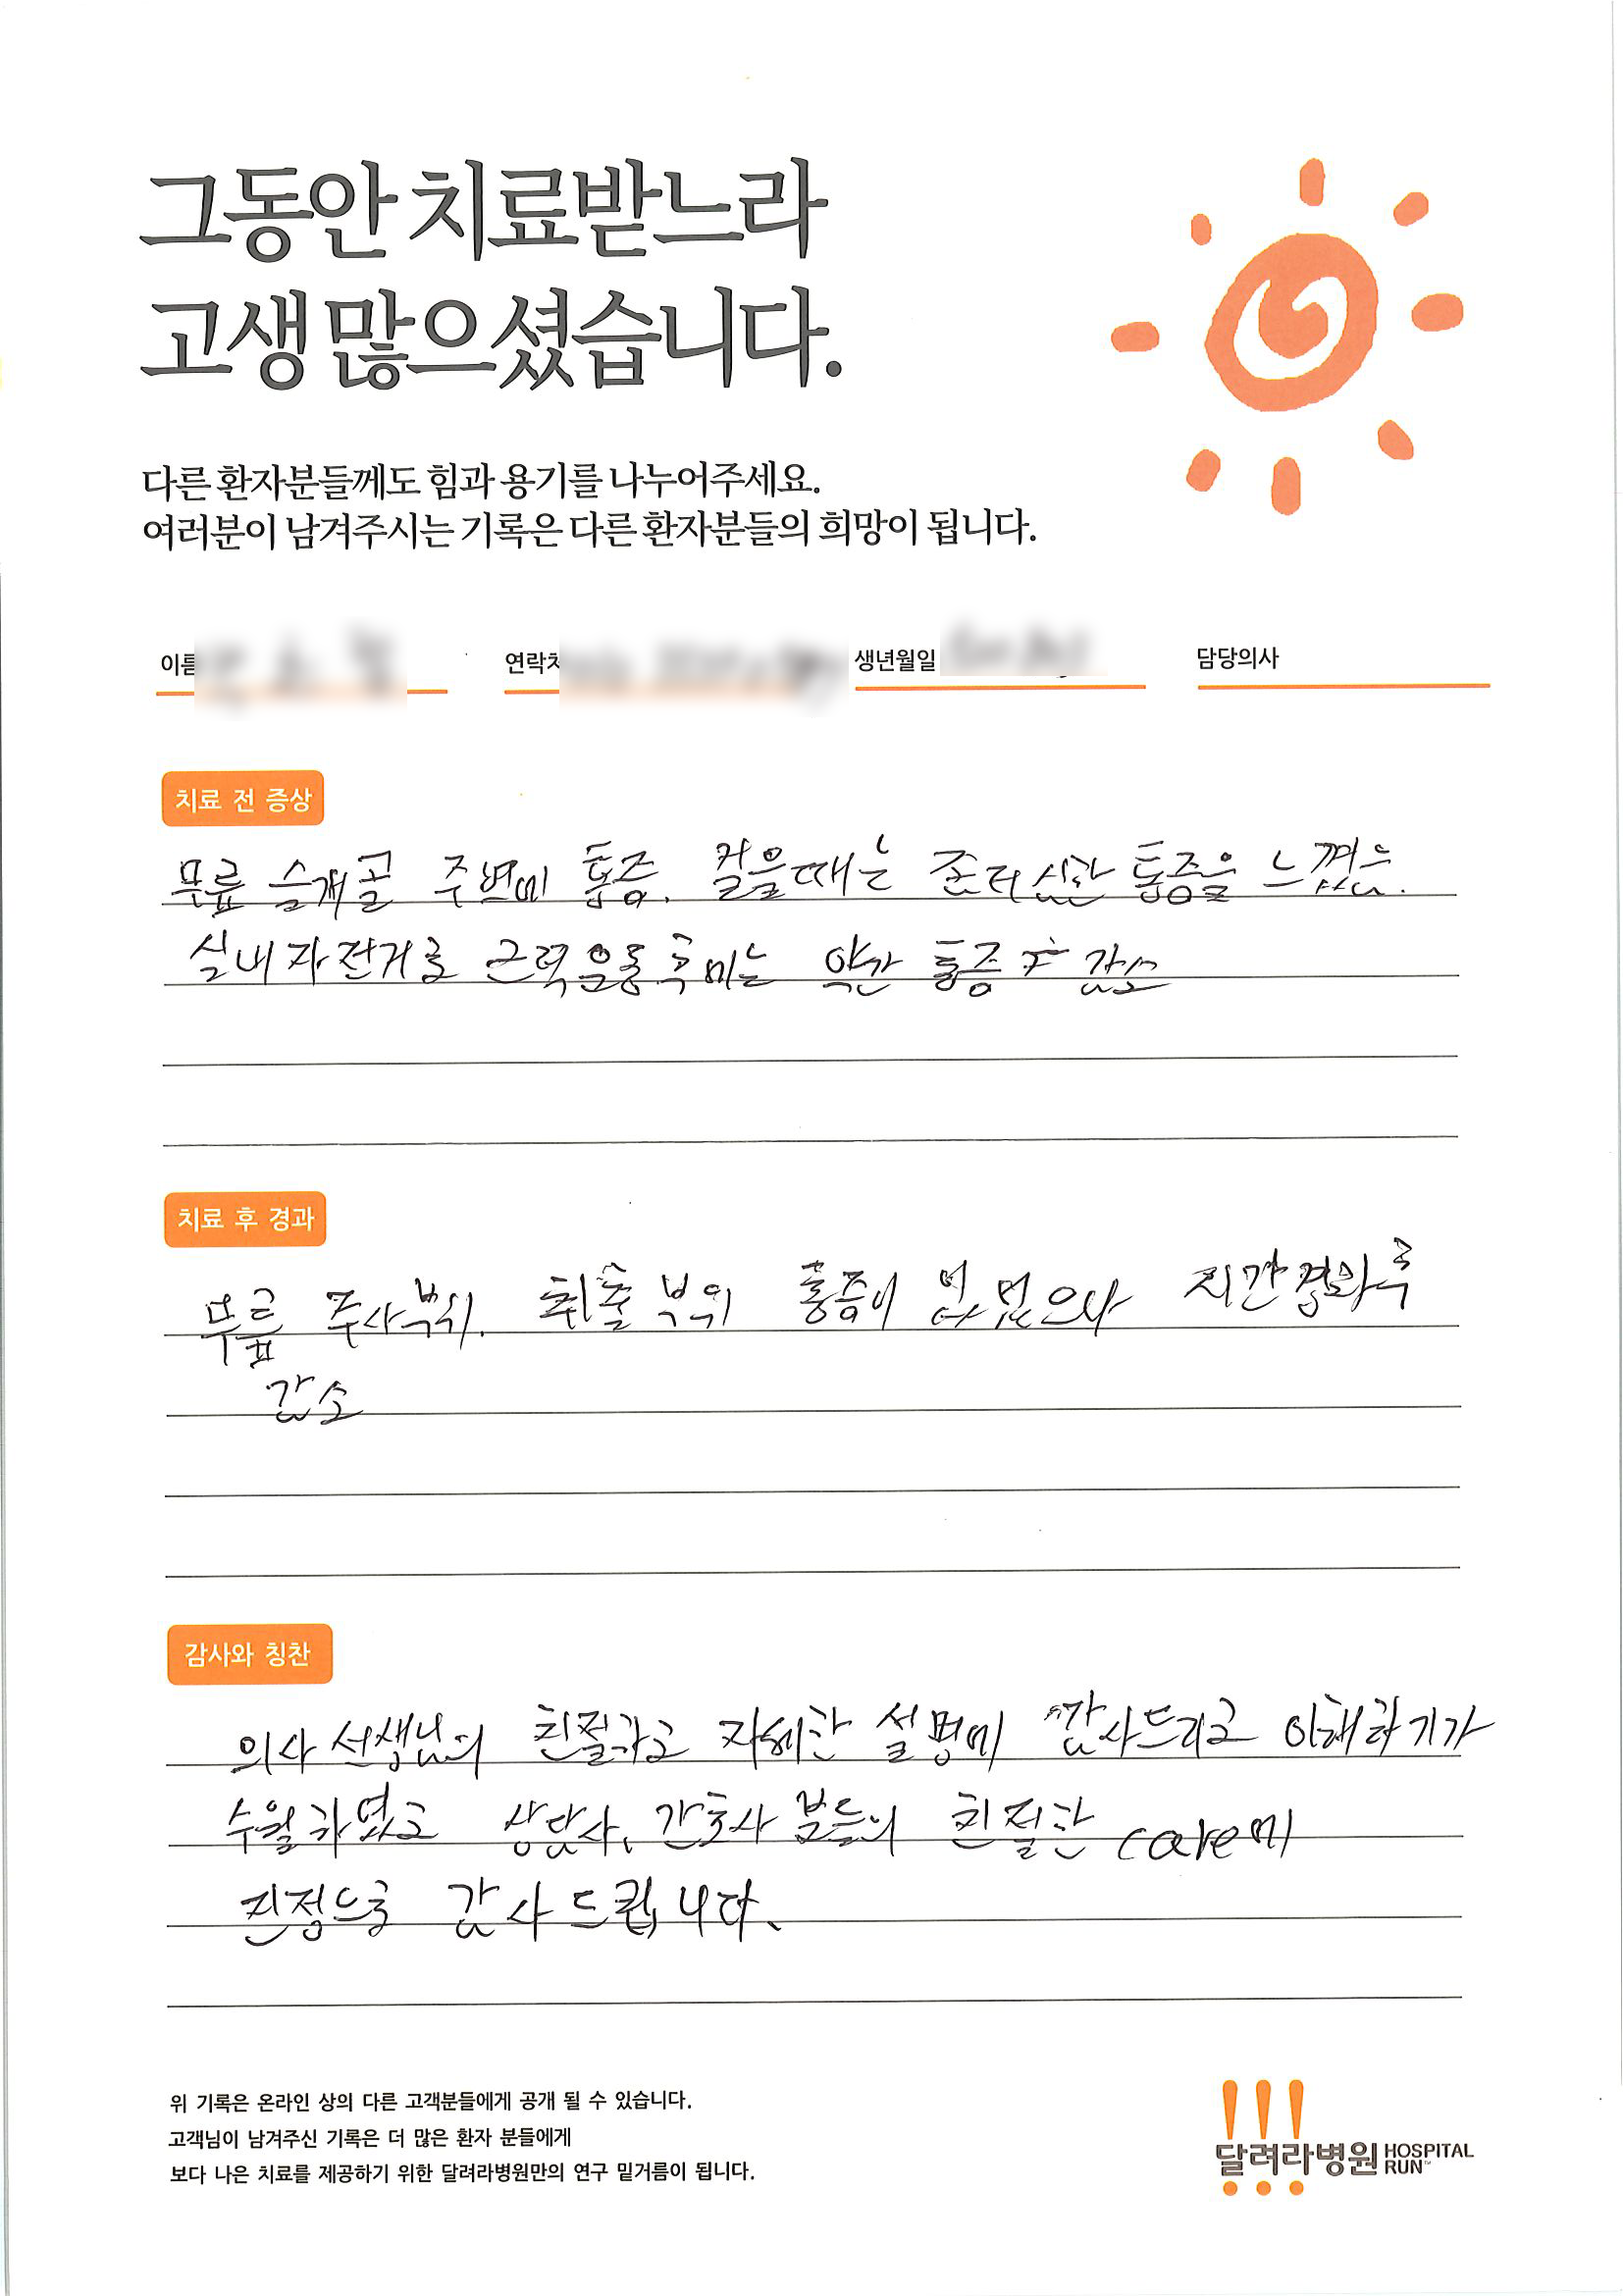 그동안 치료받느라
고생 많으셨습니다.
다른 환자분들께도 힘과 용기를 나누어주세요.
여러분이 남겨주시는 기록은 다른 환자분들의 희망이 됩니다.
이름 연락처 생년월일 담당의사
치료 전 증상
무릎 슬개골 주변에 통증. 걸을때는 존더 심한 통증을 느꼈음.
실내자전거로 근력운동후에는 약간 통증 감소
치료 후 경과
무릎 주사부위. 취출부위 통증이 있었으나 시간경과후
감소
감사와 칭찬
의사선생님의 친절하고 자세한 설명에 감사드리고 이해하기가
수월하였고 상담사, 간호사 분들의 친절한 care에
진정으로 감사드립니다.
위 기록은 온라인 상의 다른 고객분들에게 공개 될 수 있습니다.
고객님이 남겨주신 기록은 더 많은 환자 분들에게
보다 나은 치료를 제공하기 위한 달려라병원만의 연구 밑거름이 됩니다.
달려라병원 HOSPITAL RUN™